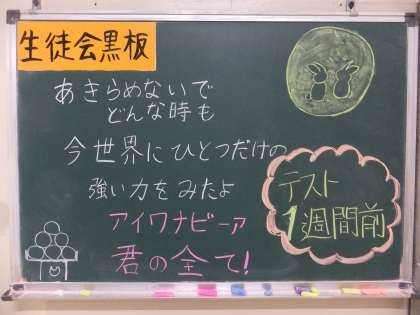 生徒会黒板
あきらめないで
どんな時も
今世界にひとつだけの
強い力をみたよ
アイワナビーア
君の全て!
テスト
1週間前